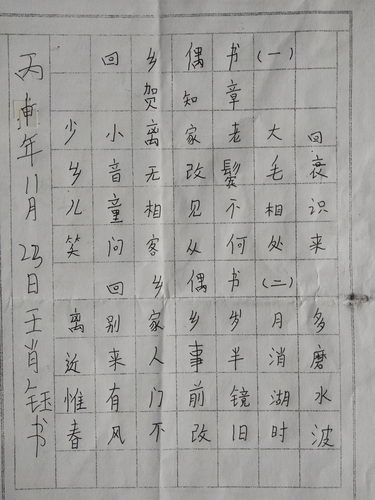 回乡偶书(一)
贺知章
少小离家老大回
乡音无改鬓毛衰
儿童相见不相识
笑问客从何处来
回乡偶书(二)
离别家乡岁月多
近来人事半消磨
惟有门前镜湖水
春风不改旧时波
丙申年11月23日王肖钰书